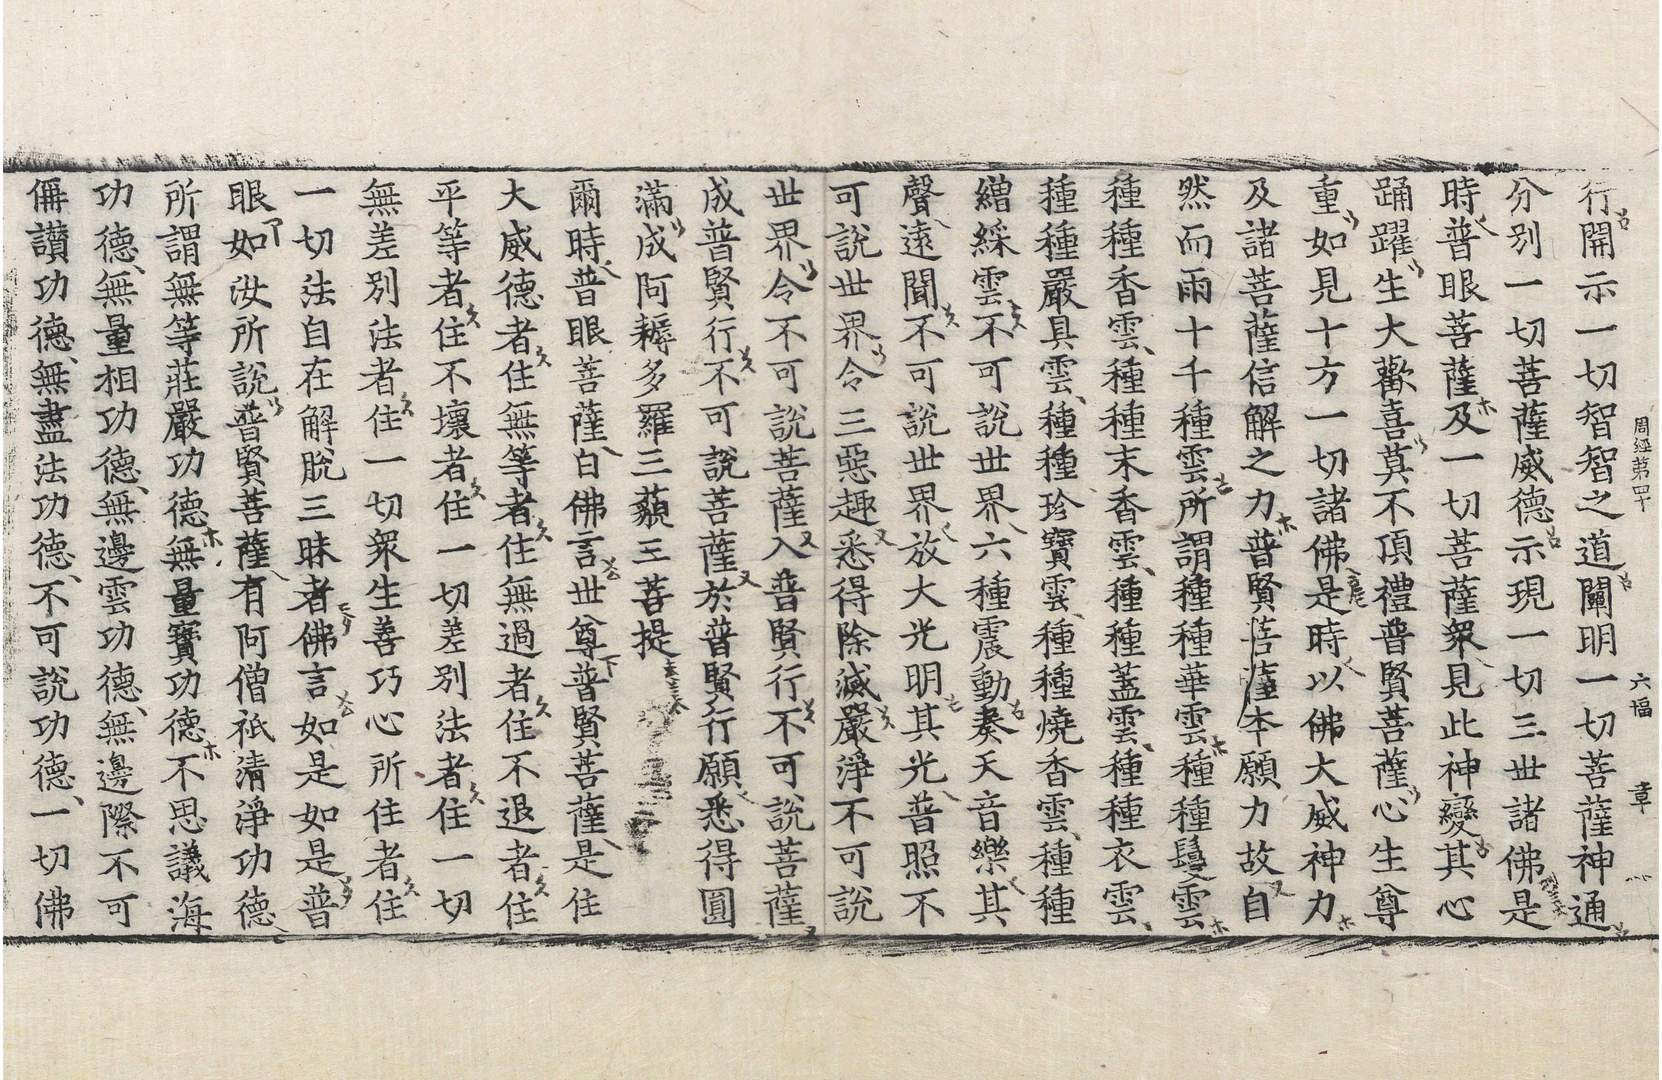 周經第四十 六幅 章
行開示一切智智之道闡明一切菩薩神通
分别一切菩薩威德示現一切三世諸佛是
時普眼菩薩及一切菩薩衆見此神變其心
踊躍生大歡喜莫不頂禮普賢菩薩心生尊
重如見十方一切諸佛是時以佛大威神力
及諸菩薩信解之力普賢菩薩本願力故自
然而雨十千種雲所謂種種華雲種種鬘雲
種種香雲種種末香雲種種蓋雲種種衣雲
種種嚴具雲種種珍寶雲種種燒香雲種種
繒綵雲不可說世界六種震動奏天音樂其
聲遠聞不可說世界放大光明其光普照不
可說世界令三惡趣悉得除滅嚴淨不可說
世界令不可說菩薩入普賢行不可說菩薩
成普賢行不可說菩薩於普賢行願悉得圓
滿成阿耨多羅三藐三菩提
爾時普眼菩薩白佛言世尊普賢菩薩是住
大威德者住無等者住無過者住不退者住
平等者住不壞者住一切差别法者住一切
無差别法者住一切衆生善巧心所住者住
一切法自在解脫三昧者佛言如是如是普
眼如汝所說普賢菩薩有阿僧祇清淨功德
所謂無等莊嚴功德無量寶功德不思議海
功德無量相功德無邊雲功德無邊際不可
稱讚功德無盡法功德不可說功德一切佛